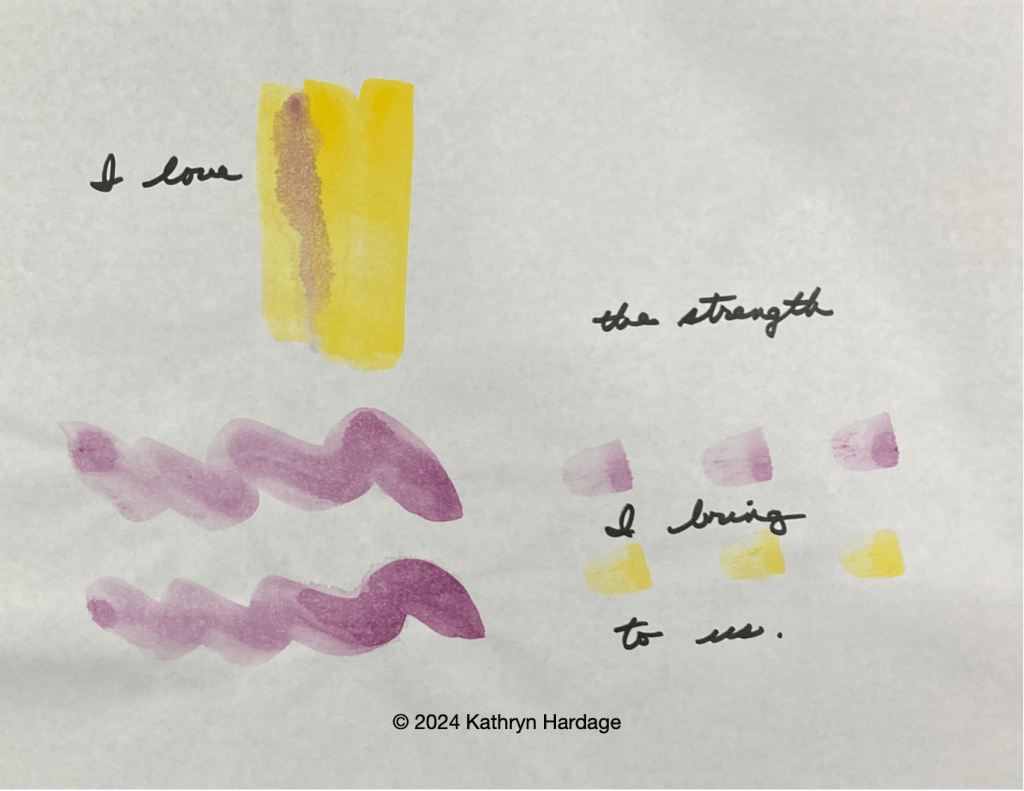 I love
the strength
I bring
to us.
© 2024 Kathryn Hardage